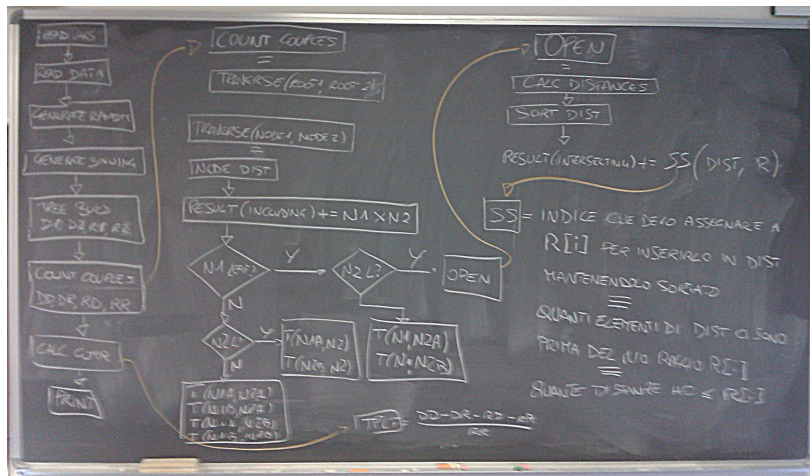 READ DATA
GENERATE RANDOM
GENERATE BINNING
TREE BUILD
D1, D2, R1, R2
COUNT COUPLES
DD, DR, RD, RR
CALC CORR
PRINT
COUNT COUPLES
=
TRAVERSE(ROOT1, ROOT2)
TRAVERSE(NODE1, NODE2)
=
NODE DIST
RESULT(INCLUDING) += N1XN2
N1 LEAF?
Y
N2 L?
Y
OPEN
N
N2L?
Y
T(N1A, N2)
T(N1B, N2)
T(N1, N2A)
T(N1, N2B)
N
T(N1A, N2A)
T(N1B, N2A)
T(N1A, N2B)
T(N1B, N2B)
TPCF = DD-DR-RD-RR
RR
OPEN
=
CALC DISTANCES
SORT DIST
RESULT(INTERSECTING) += SS(DIST, R)
SS = INDICE CHE DEVO ASSEGNARE A
R[i] PER INSERIRLO IN DIST
MANTENENDOLO SORTATO
≡
QUANTI ELEMENTI DI DIST CI SONO
PRIMA DEL MIO RAGGIO R[i]
≡
QUANTE DISTANZE HO ≤ R[i]